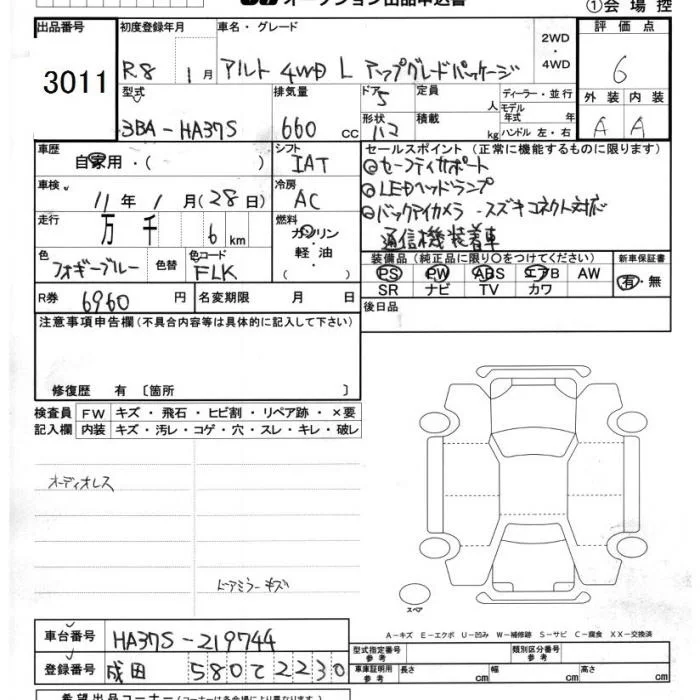 オークション出品申込書
①会場控
出品番号 初度登録年月 車名・グレード 評価点
3011 R8 1月 アルト 4WD L アップグレードパッケージ 2WD・4WD 6
型式 排気量 ドア 5 定員 人 ディーラー・並行 外装 内装
3BA-HA37S 660cc 形状 積載 kg モデル年式 年 ハンドル 左・右 A A
車歴 シフト セールスポイント(正常に機能するものに限ります)
自家用・( ) IAT ◎セーフティサポート
車検 冷房 ◎LEDヘッドランプ
11年1月(28日) AC ◎バックアイカメラ スズキコネクト対応
走行 燃料 通信機装着車
万 千 6km ガソリン・軽油・( )
色 色替 色コード 装備品(純正品に限り○をつけてください) 新車保証書
フォギーブルー FLK PS PW ABS エアB AW 有・無
SR ナビ TV カワ
R券 6960円 名変期限 月 日 後日品
注意事項申告欄(不具合内容等は具体的に記入して下さい)
修復歴 有〔箇所 〕
検査員 FW キズ・飛石・ヒビ割・リペア跡・×要
記入欄 内装 キズ・汚レ・コゲ・穴・スレ・キレ・破レ
オーディオレス
ドアミラーキズ
スペア
A-キズ E-エクボ U-凹み W-補修跡 S-サビ C-腐食 XX-交換済
車台番号 HA37S-219744 型式指定番号 参考 類別区分番号 参考
登録番号 成田 580 て 2230 車庫証明用 参考 長さ cm 幅 cm 高さ cm
希望出品コーナー(各会場により異なります)